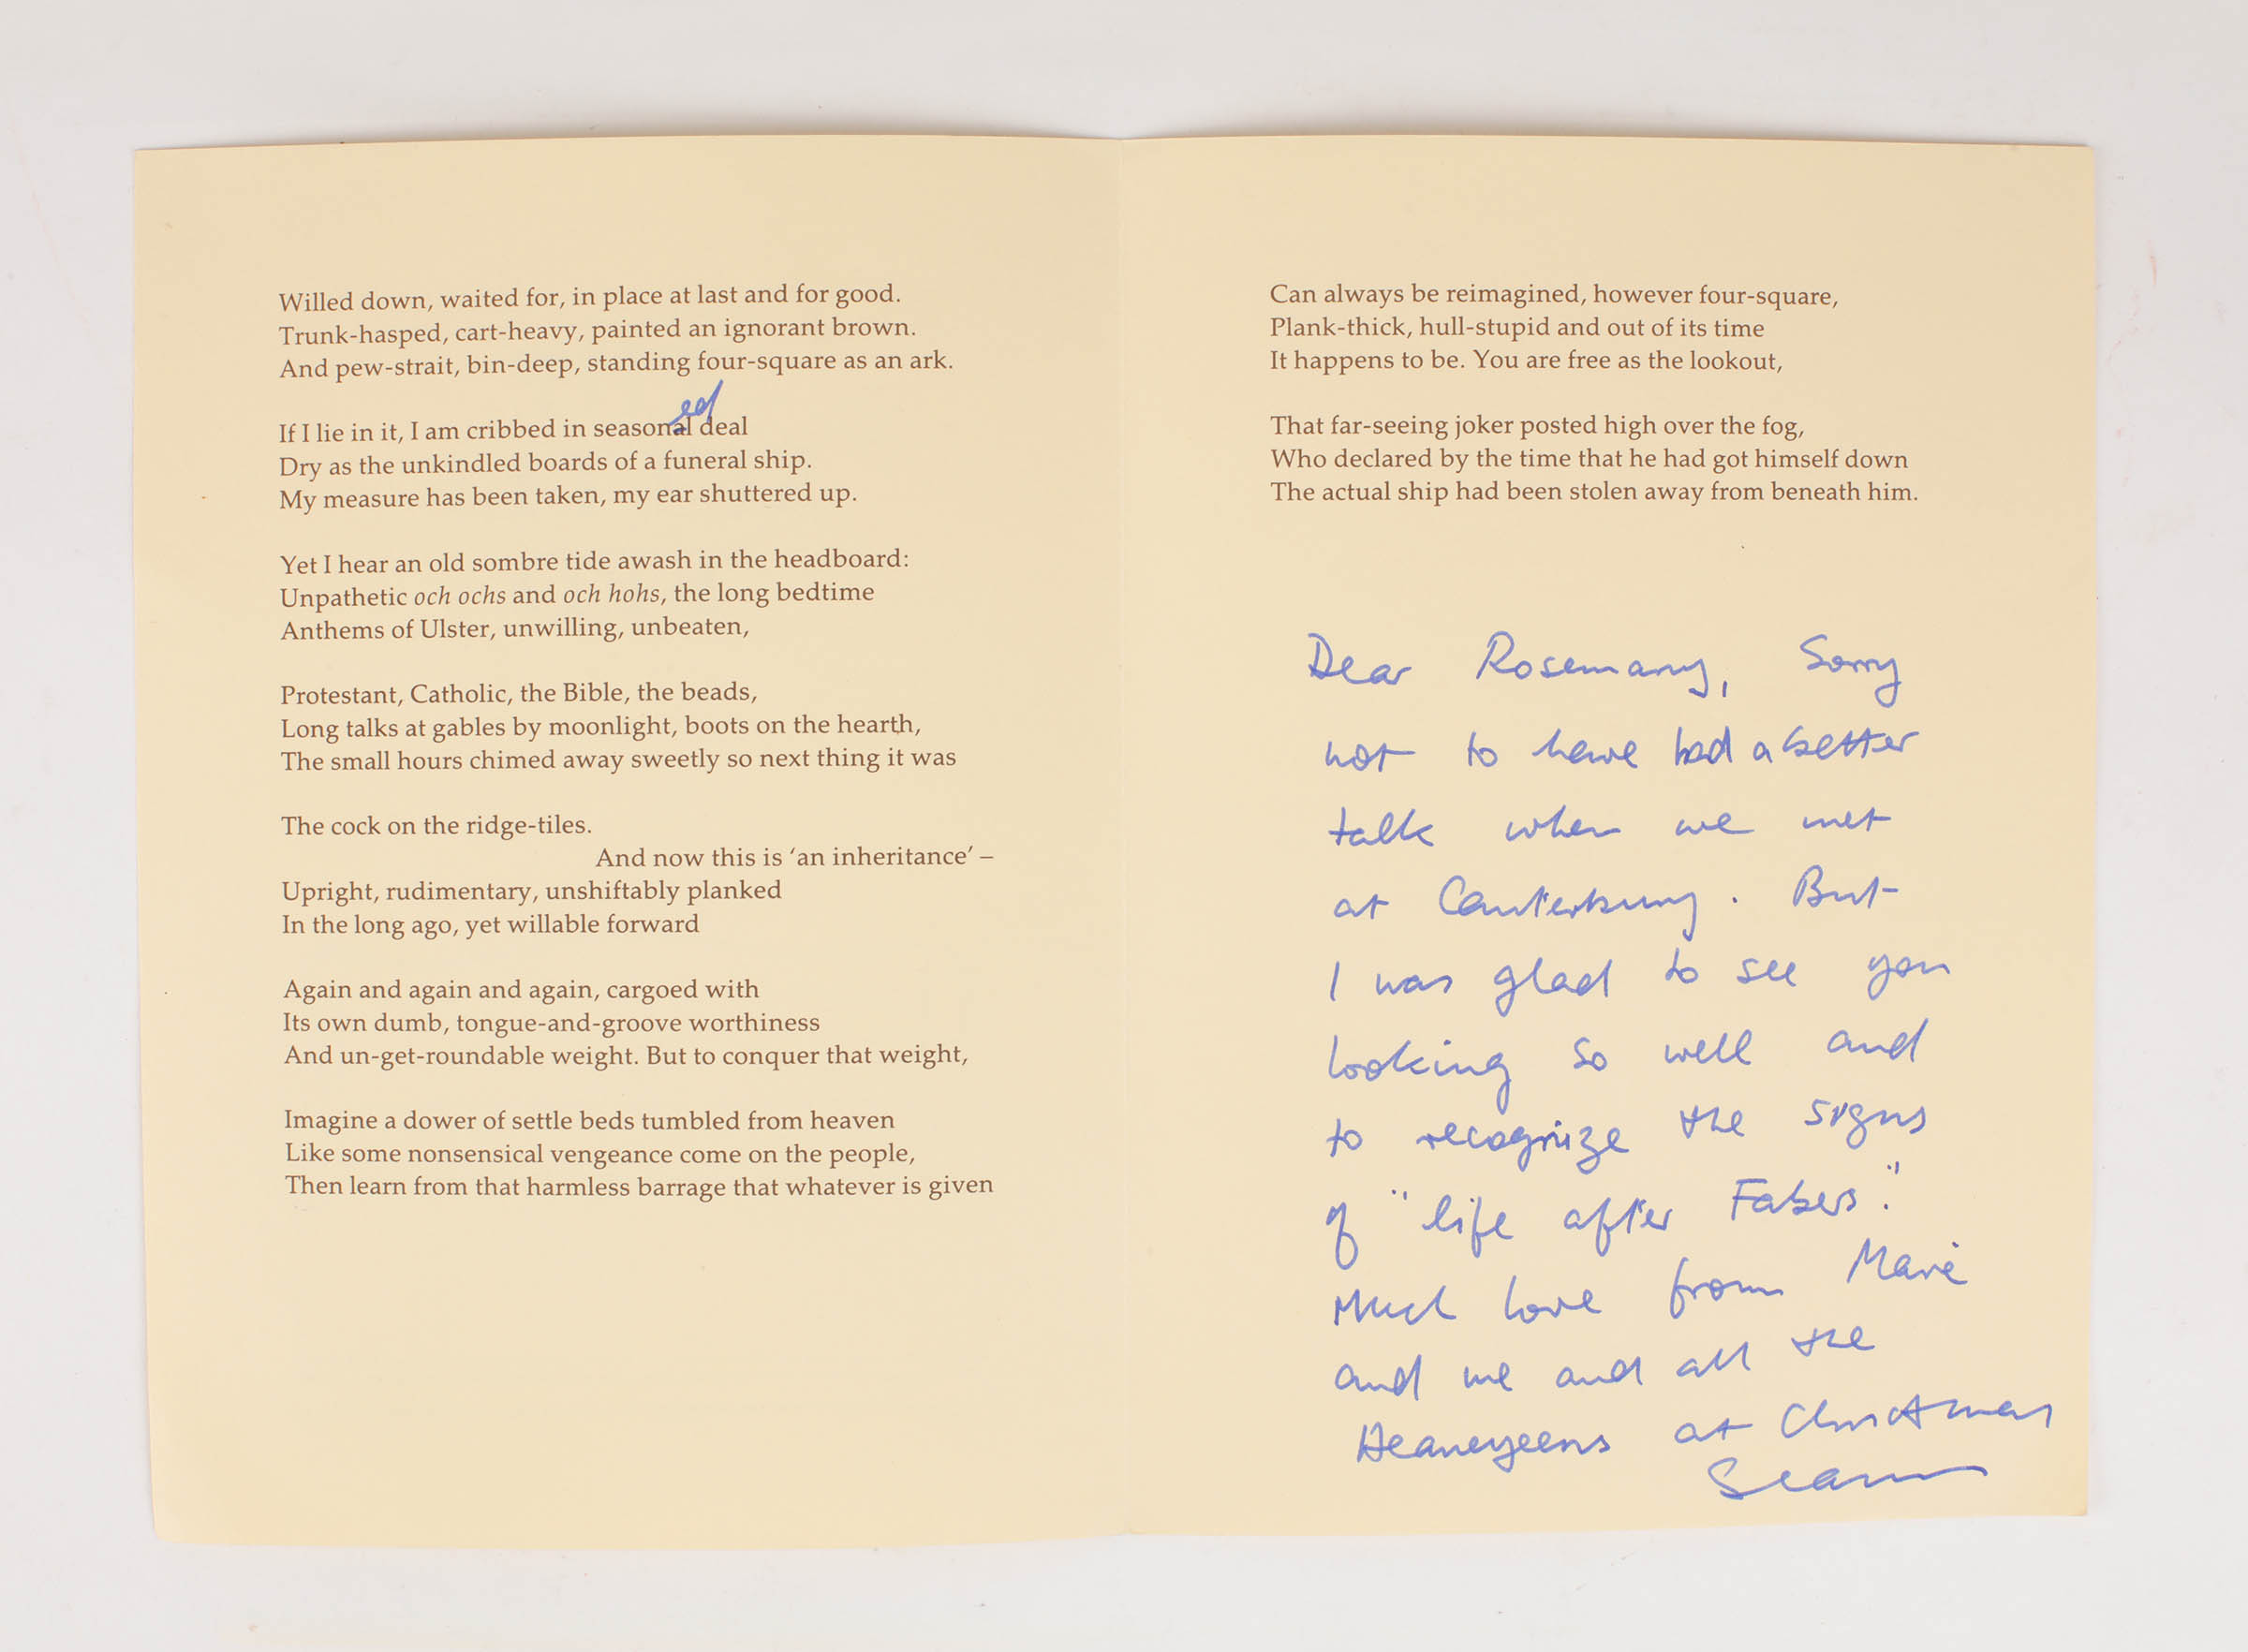 Willed down, waited for, in place at last and for good.
Trunk-hasped, cart-heavy, painted an ignorant brown.
And pew-strait, bin-deep, standing four-square as an ark.
ed
If I lie in it, I am cribbed in seasonal deal
Dry as the unkindled boards of a funeral ship.
My measure has been taken, my ear shuttered up.
Yet I hear an old sombre tide awash in the headboard:
Unpathetic och ochs and och hohs, the long bedtime
Anthems of Ulster, unwilling, unbeaten,
Protestant, Catholic, the Bible, the beads,
Long talks at gables by moonlight, boots on the hearth,
The small hours chimed away sweetly so next thing it was
The cock on the ridge-tiles.
And now this is ‘an inheritance’ –
Upright, rudimentary, unshiftably planked
In the long ago, yet willable forward
Again and again and again, cargoed with
Its own dumb, tongue-and-groove worthiness
And un-get-roundable weight. But to conquer that weight,
Imagine a dower of settle beds tumbled from heaven
Like some nonsensical vengeance come on the people,
Then learn from that harmless barrage that whatever is given
Can always be reimagined, however four-square,
Plank-thick, hull-stupid and out of its time
It happens to be. You are free as the lookout,
That far-seeing joker posted high over the fog,
Who declared by the time that he had got himself down
The actual ship had been stolen away from beneath him.
Dear Rosemary, Sorry
not to have had a better
talk when we met
at Canterbury. But
I was glad to see you
looking so well and
to recognize the signs
of "life after Fabers."
Much love from Marie
and me and all the
Heaneyeens at Christmas
Seamus